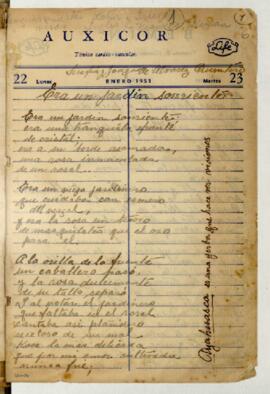 AUXICOR
Life
Tónico cardio-vascular
22 Lunes
ENERO 1951
Martes 23
Era un jardin sonriente
Era un jardin sonriente;
era una tranquila fuente
de cristal;
era a su borde asomada,
una rosa inmaculada
de un rosal.
Era un viejo jardinero
que cuidaba con esmero
del vergel,
y era la rosa un tesoro
de mas quilates que el oro
para el.
A la orilla de la fuente
un caballero pasó,
y la rosa dulcemente
de su tallo separó
Y al notar el jardinero
que faltaba en el rosal
cantaba asi plañidero
receloso de su mal
Rosa la mas delicada
que por mi amor cultivada
nunca fué;
Ayahuasca es una yerba que hace ver visiones